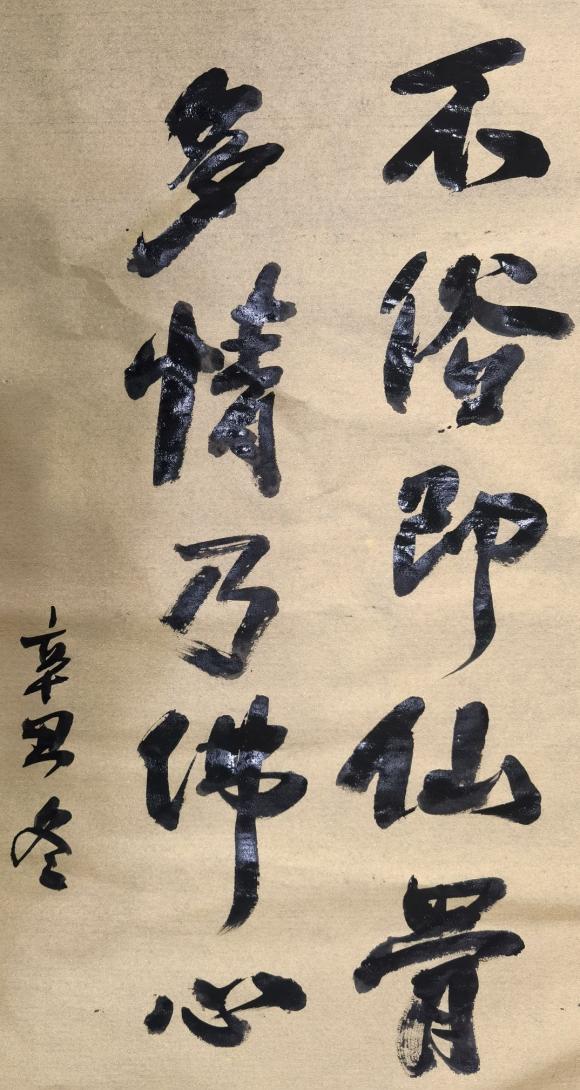 不俗即仙骨
多情乃佛心
辛丑冬